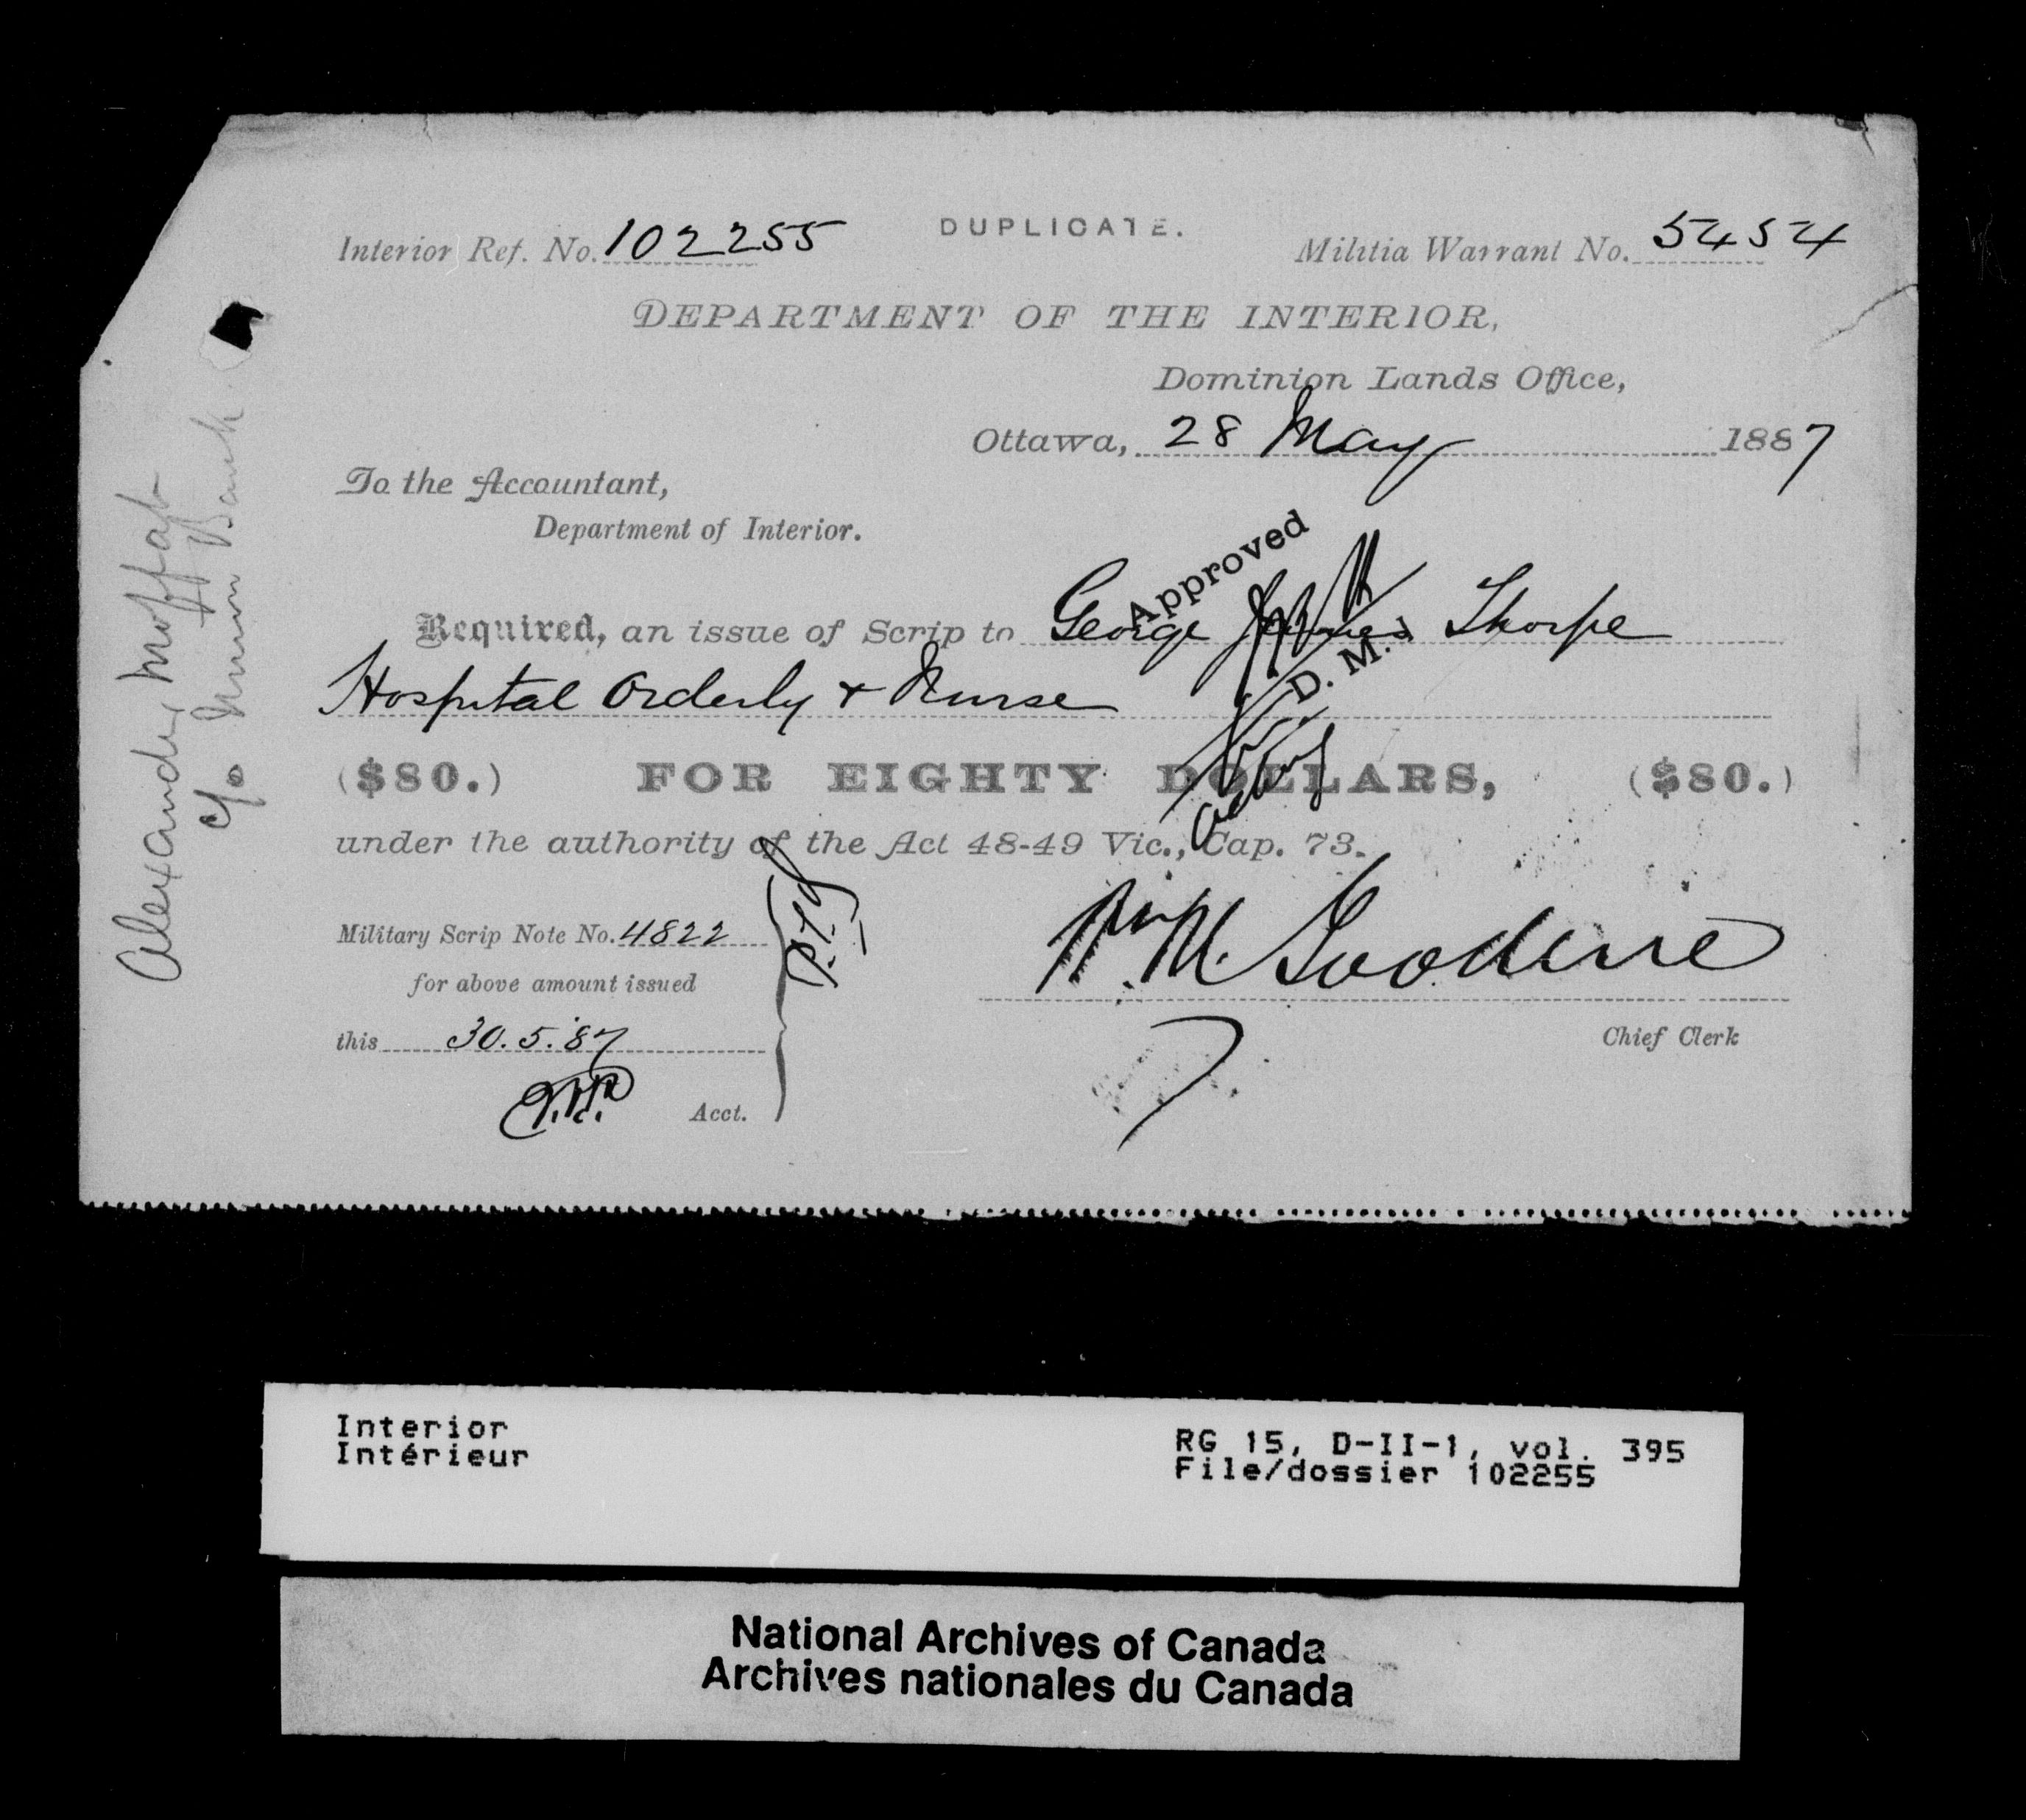 Interior Ref. No. 102255
DUPLICATE.
Militia Warrant No. 5454
DEPARTMENT OF THE INTERIOR,
Dominion Lands Office,
Ottawa, 28 May 1887
To the Accountant,
Department of Interior.
Approved
Required, an issue of Scrip to George James Thorpe
Hospital Orderly & Nurse
D. M.
Acting
($80.) FOR EIGHTY DOLLARS, ($80.)
under the authority of the Act 48-49 Vic., Cap. 73.
Military Scrip Note No. 4822
for above amount issued
this 30.5.'87
Acct.
Wm M. Goodeve
Chief Clerk
Alexander Moffat
c/o Union Bank
Interior
Intérieur
RG 15, D-II-1, vol. 395
File/dossier 102255
National Archives of Canada
Archives nationales du Canada